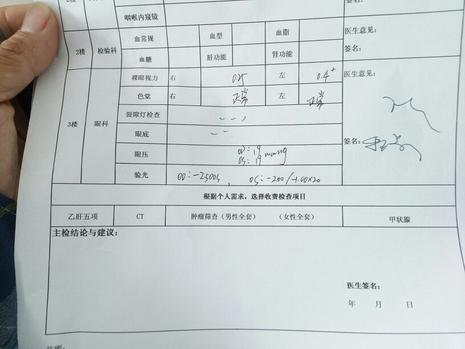 咽喉内窥镜
2楼 检验科 血常规 血型 血脂 医生意见:
血糖 肝功能 肾功能 签名:
3楼 眼科 裸眼视力 右 0.15 左 0.4+ 医生意见:
色觉 右 正常 左 正常
裂隙灯检查
眼底 签名:
眼压 OD:19 OS:19 mmHg
验光 OD:-2.50DS, OS:-2.00/-1.00×20
根据个人需求,选择收费检查项目
乙肝五项 CT 肿瘤筛查(男性全套) (女性全套) 甲状腺
主检结论与建议:
医生签名:
年 月 日